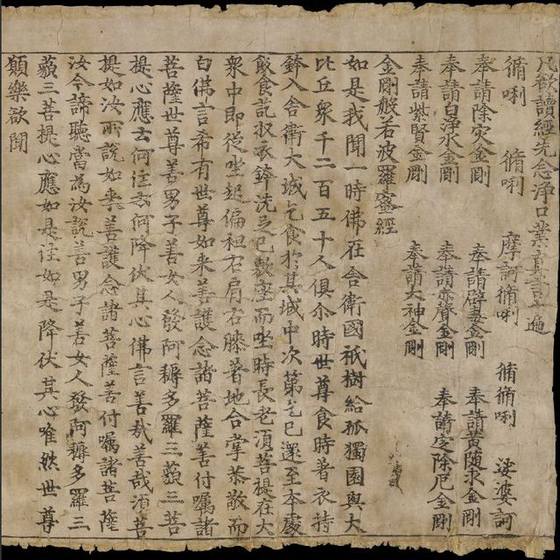 凡欲讀經先念淨口業真言一遍
脩唎 脩唎 摩訶脩唎 脩脩唎 娑婆訶
奉請除灾金剛 奉請辟毒金剛 奉請黃随求金剛
奉請白淨水金剛 奉請赤聲金剛 奉請定除厄金剛
奉請紫賢金剛 奉請大神金剛
金剛般若波羅蜜經
如是我聞一時佛在舍衛國祇樹給孤獨園與大
比丘衆千二百五十人俱尒時世尊食時著衣持
鉢入舍衛大城乞食於其城中次第乞已還至本處
飯食訖収衣鉢洗足已敷座而坐時長老湏菩提在大
衆中即從坐起偏袒右肩右膝著地合掌恭敬而
白佛言希有世尊如来善護念諸菩薩善付嘱諸
菩薩世尊善男子善女人發阿耨多羅三藐三菩
提心應云何住云何降伏其心佛言善哉善哉湏菩
提如汝所說如来善護念諸菩薩善付嘱諸菩薩
汝今諦聽當為汝說善男子善女人發阿耨多羅三
藐三菩提心應如是住如是降伏其心唯然世尊
願樂欲聞